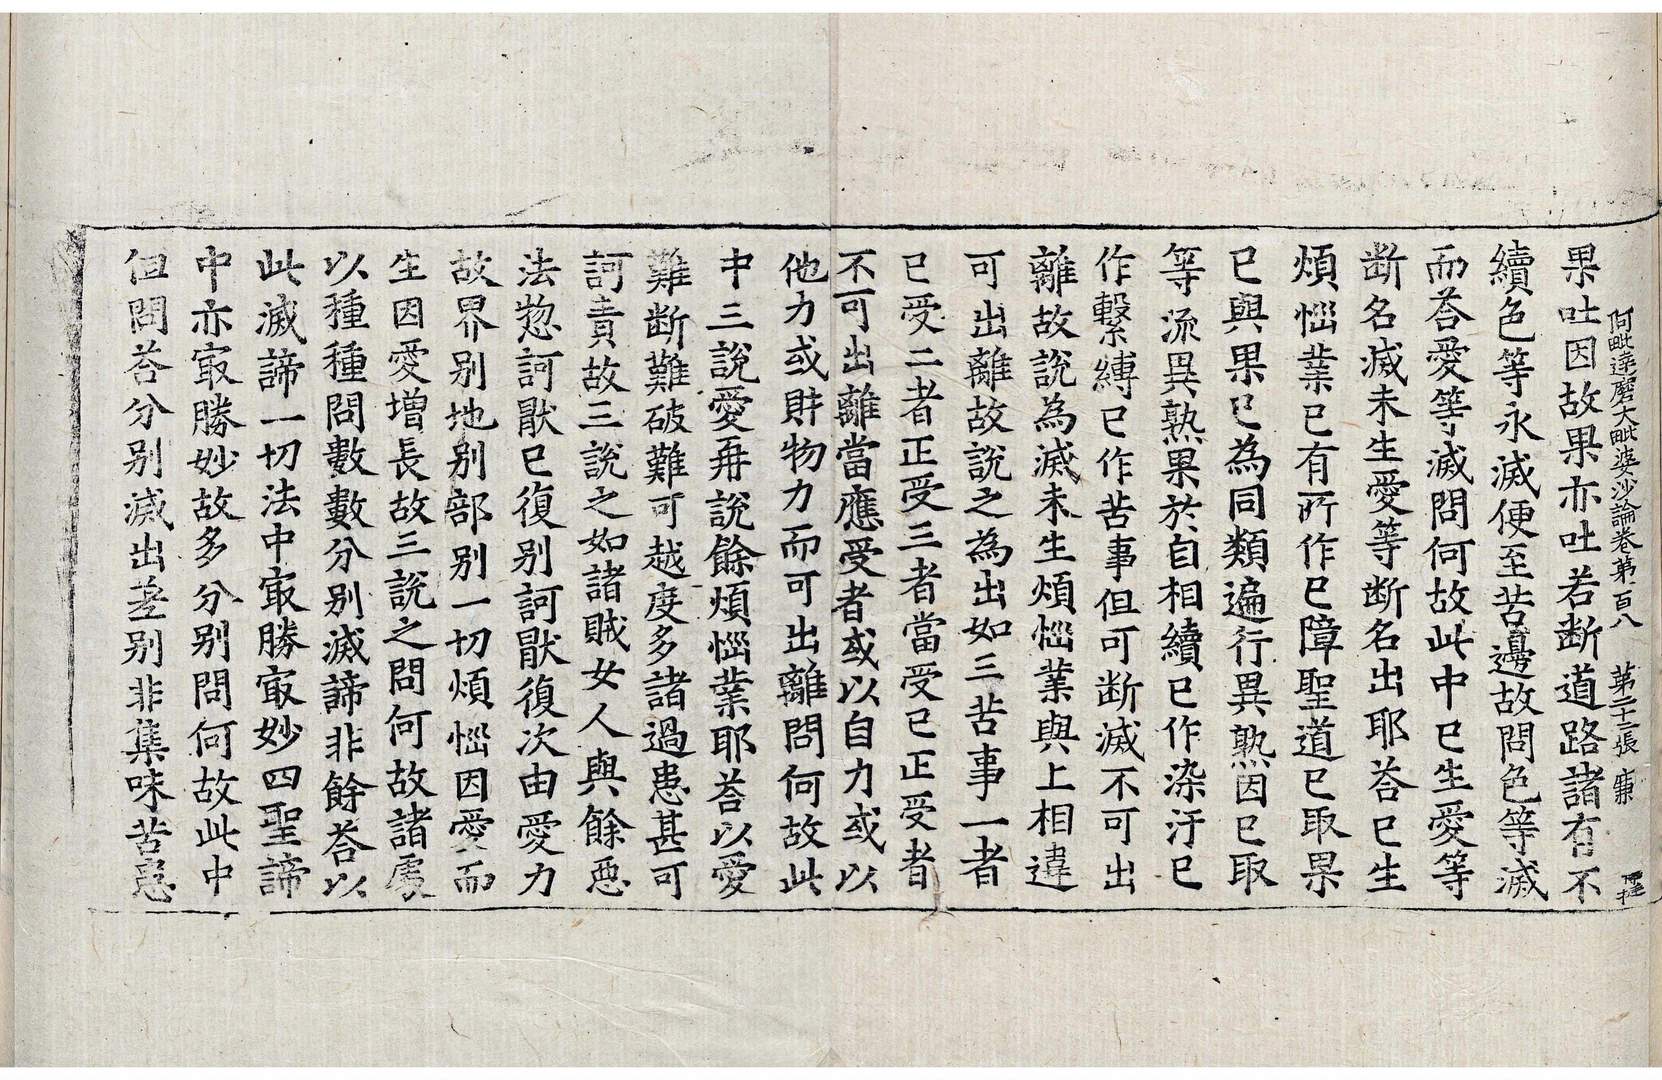 阿毗達磨大毗婆沙論卷第一百八　第二十二張　廉
果吐因故果亦吐若斷道路諸有不
續色等永滅便至苦邊故問色等滅
而荅愛等滅問何故此中已生愛等
斷名滅未生愛等斷名出耶荅已生
煩惱業已有所作已障聖道已取果
已與果已為同類遍行異熟因已取
等流異熟果於自相續已作染汙已
作繫縛已作苦事但可斷滅不可出
離故說為滅未生煩惱業與上相違
可出離故說之為出如三苦事一者
已受二者正受三者當受已正受者
不可出離當應受者或以自力或以
他力或財物力而可出離問何故此
中三說愛再說餘煩惱業耶荅以愛
難斷難破難可越度多諸過患甚可
訶責故三說之如諸賊女人與餘惡
法惣訶猒已復別訶猒復次由愛力
故界別地別部別一切煩惱因愛而
生因愛增長故三說之問何故諸處
以種種問數數分別滅諦非餘荅以
此滅諦一切法中㝡勝㝡妙四聖諦
中亦㝡勝妙故多分別問何故此中
但問荅分別滅出差別非集味苦患